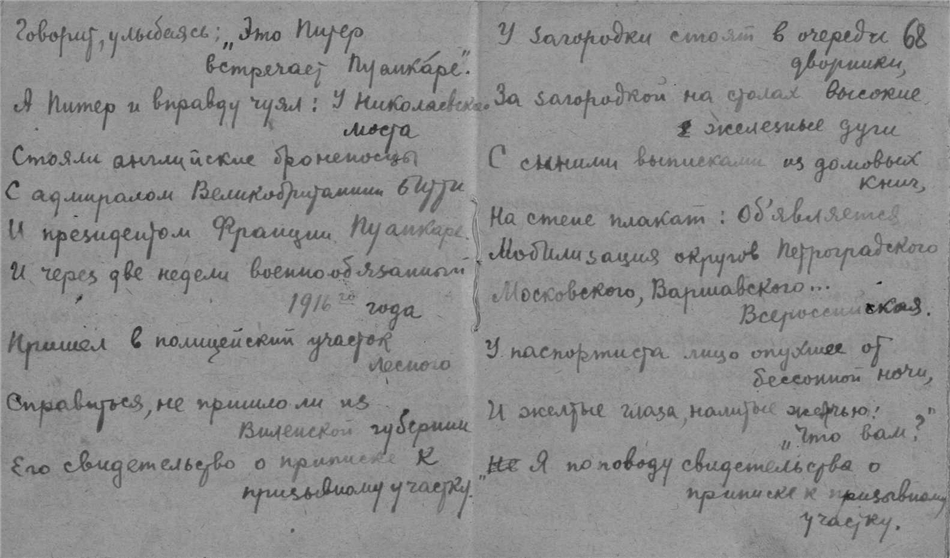 Говорит, улыбаясь: „Это Питер
встречает Пуанкаре".
А Питер и вправду чуял: У Николаевско
моста
Стояли английские броненосцы
С адмиралом Великобритании Битти
И президентом Франции Пуанкаре.
И через две недели военнообязанный
1916 го года
Пришел в полицейский участок
Лесного
Справиться, не пришло ли из
Виленской губернии
Его свидетельство о приписке к
призывному участку."
У загородки стоят в очереди 68
дворники,
За загородкой на столах высокие
железные дуги
С синими выписками из домовых
книг,
На стене плакат: Об'является
Мобилизация округов Петроградского
Московского, Варшавского...
Всероссийская.
У паспортиста лицо опухшее от
бессонной ночи,
И желтые глаза, налитые желчью:
„Что вам?"
Не Я по поводу свидетельства о
приписке к призывному
участку.